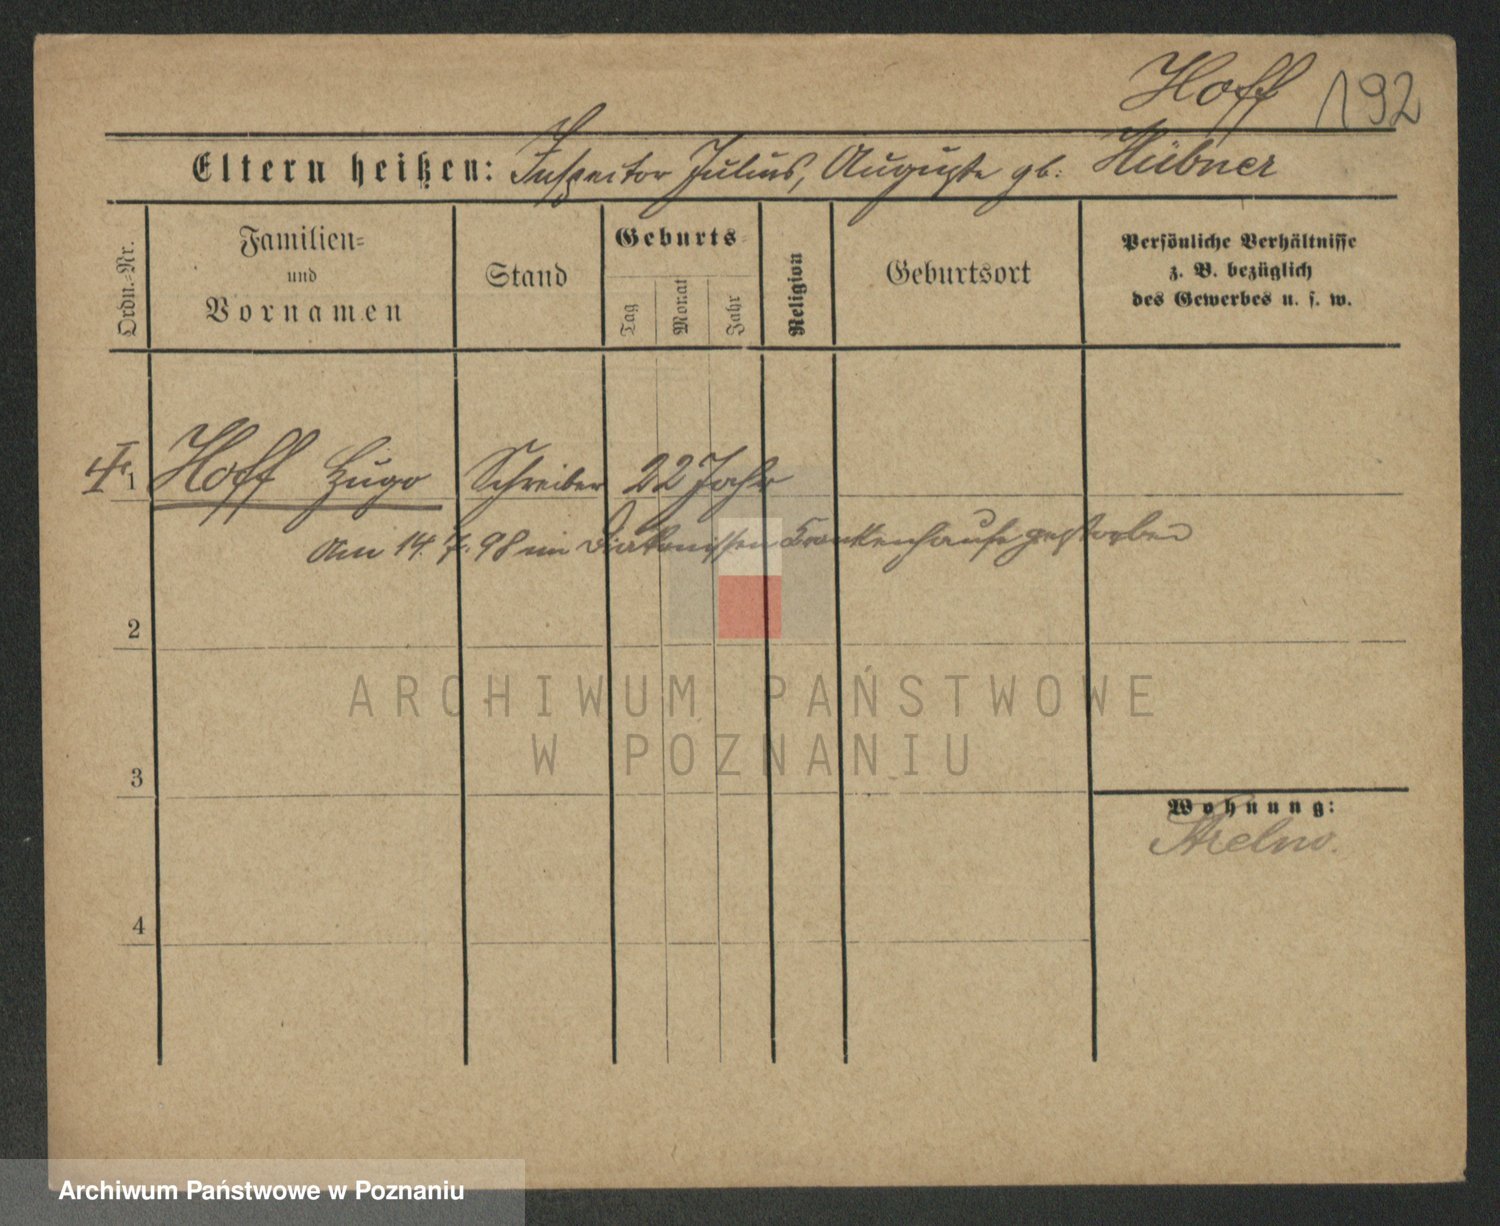 Hoff 192
Eltern heißen: Inspektor Julius, Auguste gb. Hübner
Ordn.=Nr.
Familien=
und
Vornamen
Stand
Geburts=
Tag
Monat
Jahr
Religion
Geburtsort
Persönliche Verhältnisse
z. B. bezüglich
des Gewerbes u. s. w.
1 Hoff Hugo Schreiber 22 Jahr
Am 14. 7. 98 im Diakonissen Krankenhause gestorben
2
ARCHIWUM PAŃSTWOWE
W POZNANIU
3
Wohnung:
4
Archiwum Państwowe w Poznaniu